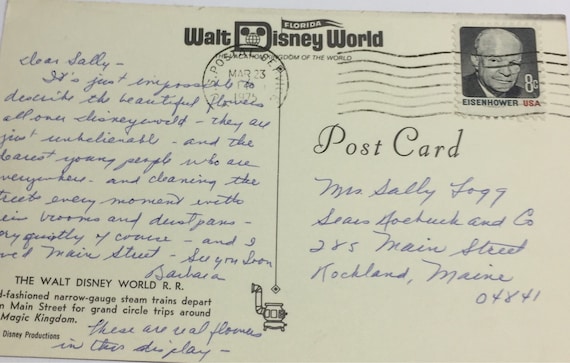 FLORIDA
Walt Disney World
THE VACATION KINGDOM OF THE WORLD
MAR 23
PM
1975
8c
EISENHOWER USA
Dear Sally-
It's just impossible to
describe the beautiful flowers
all over Disneyworld - they are
just unbelievable - and the
dearest young people who are
everywhere - and cleaning the
streets every moment with
their brooms and dustpans -
very quietly of course - and I
loved Main Street - See you soon
Barbara
THE WALT DISNEY WORLD R. R.
d-fashioned narrow-gauge steam trains depart
m Main Street for grand circle trips around
Magic Kingdom.
Disney Productions
These are real flowers
in this display -
Post Card
Mrs Sally Fogg
Sears Roebuck and Co
285 Main Street
Rockland, Maine
04841